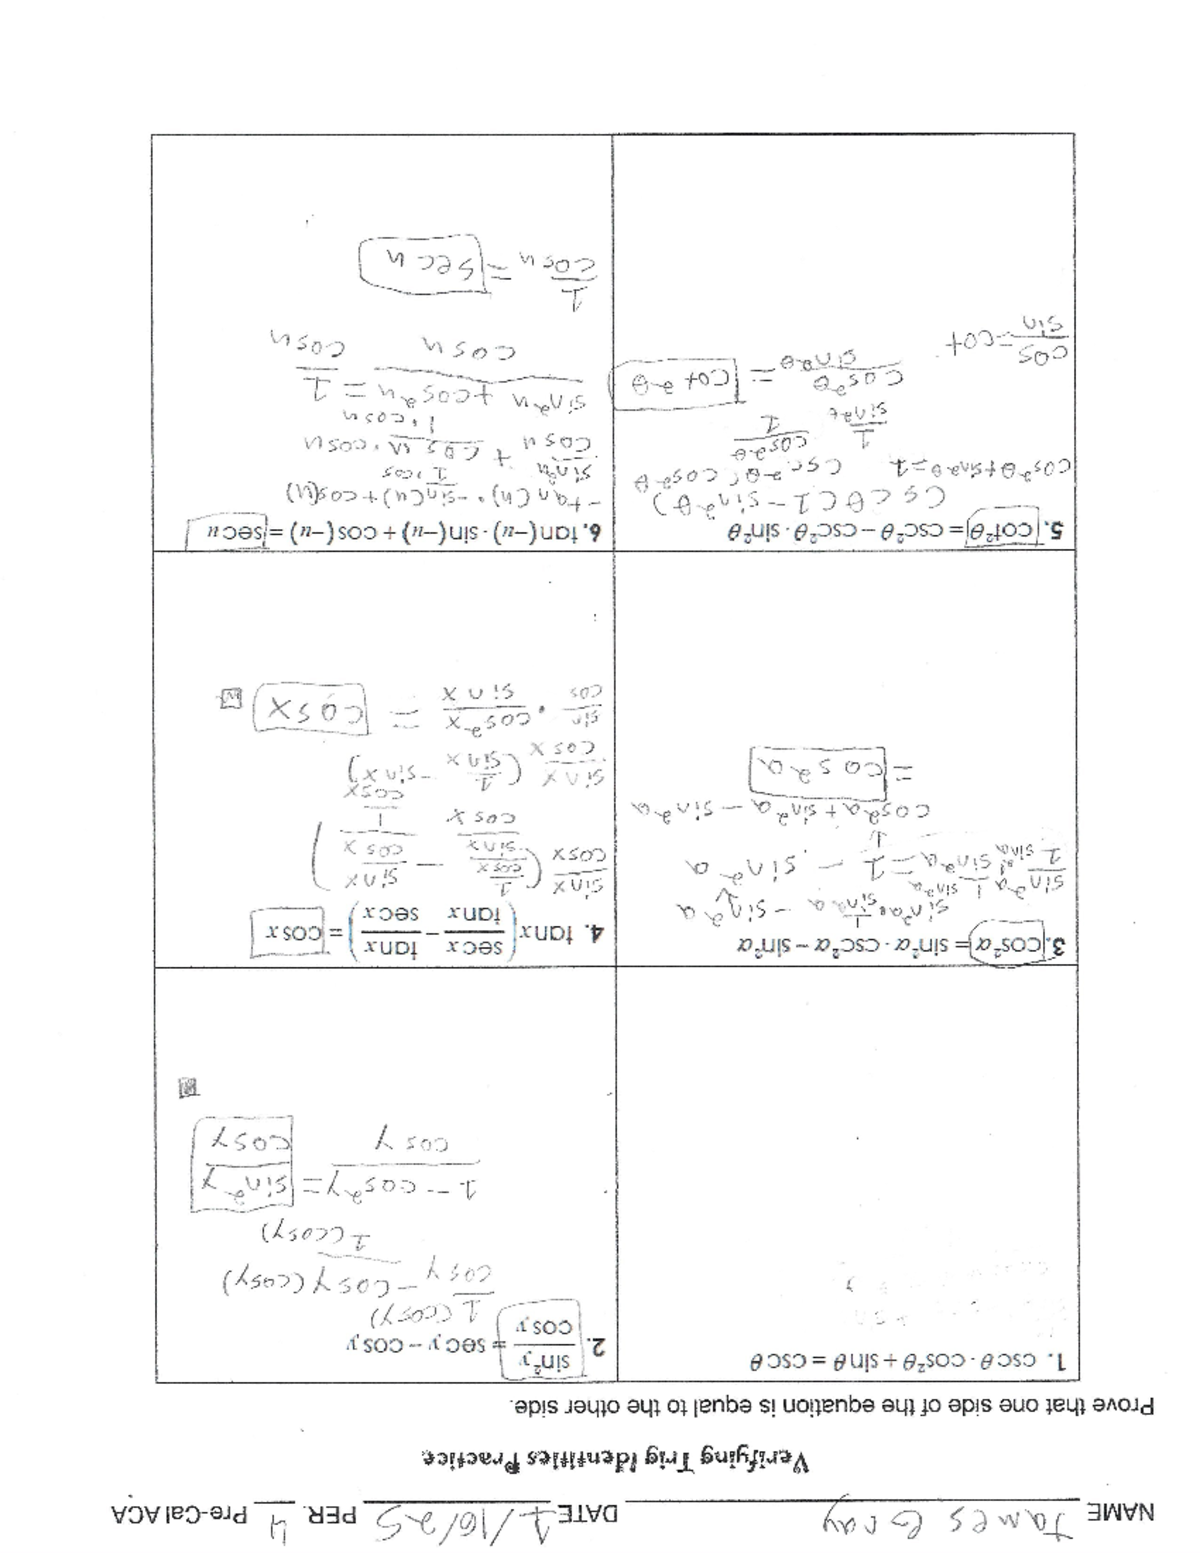 NAME James Gray DATE 1/16/25 PER. 4 Pre-Cal ACA
Verifying Trig Identities Practice
Prove that one side of the equation is equal to the other side.
1. cscθ · cos²θ + sinθ = cscθ
2. sin²y/cosy = secy − cosy
1 (cosy)
1/cosy − cosy (cosy)
1(cosy)
1 − cos²y/cosy = sin²y/cosy
3. cos²α = sin²α · csc²α − sin²α
sin²a · 1/sin²a − sin²a
sin²a/1 · 1/sin²a = 1 − sin²a
cos²a + sin²a − sin²a
= cos²a
4. tanx(secx/tanx − tanx/secx) = cosx
sinx/cosx (1/cosx/sinx/cosx − sinx/cosx/1/cosx)
sinx/cosx (1/sinx − sinx)
sin/cos · cos²x/sinx = cosx
5. cot²θ = csc²θ − csc²θ · sin²θ
Cs²θ(1 − sin²θ)
cos²θ + sin²θ = 1 csc²θ · cos²θ
1/sin²θ · cos²θ/1
cos²θ/sin²θ = cot²θ
cos/sin = cot
6. tan(−u) · sin(−u) + cos(−u) = secu
−tan(u) · −sin(u) + cos(u)
sin²u/cosu + cosu/1 · cosu/1·cosu
sin²u + cos²u/cosu = 1/cosu
1/cosu = secu